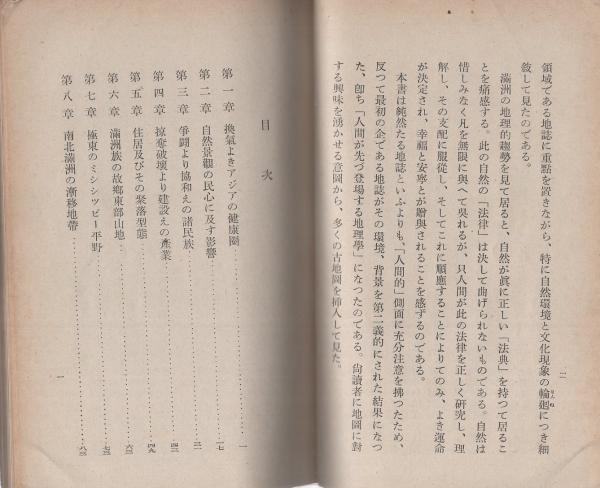 領域である地誌に重點を置きながら、特に自然環境と文化現象の輪廻につき細
敍して見たのである。
滿洲の地理的趨勢を見て居ると、自然が眞に正しい「法典」を持つて居るこ
とを痛感する。此の自然の「法律」は決して曲げられないものである。自然は
惜しみなく凡を無限に與へて呉れるが、只人間が此の法律を正しく研究し、理
解し、その支配に服從し、そしてこれに順應することによりてのみ、よき運命
が決定され、幸福と安寧とが贈與されることを感ずるのである。
本書は純然たる地誌といふよりも、「人間的」側面に充分注意を拂つたため、
反つて最初の企である地誌がその環境、背景を第二義的にされた結果になつ
た、卽ち「人間が先づ登場する地理學」になつたのである。尙讀者に地圖に對
する興味を湧かせる意圖から、多くの古地圖を挿入して見た。
二
目次
第一章 換氣よきアジアの健康圈……一
第二章 自然景觀の民心に及す影響……一七
第三章 爭鬪より協和えの諸民族……三一
第四章 掠奪破壞より建設えの產業……四三
第五章 住居及びその聚落型態……四九
第六章 滿洲族の故鄕東部山地……六三
第七章 極東のミシシツピー平野……七三
第八章 南北滿洲の漸移地帶……八三
一